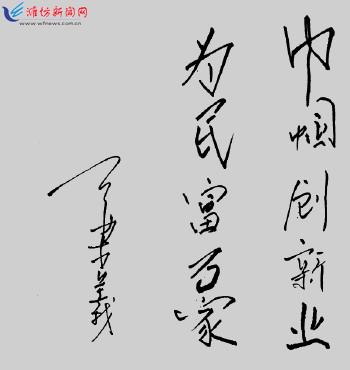 潍坊新闻网
www.wfnews.com.cn
巾帼创新业
为民富万家